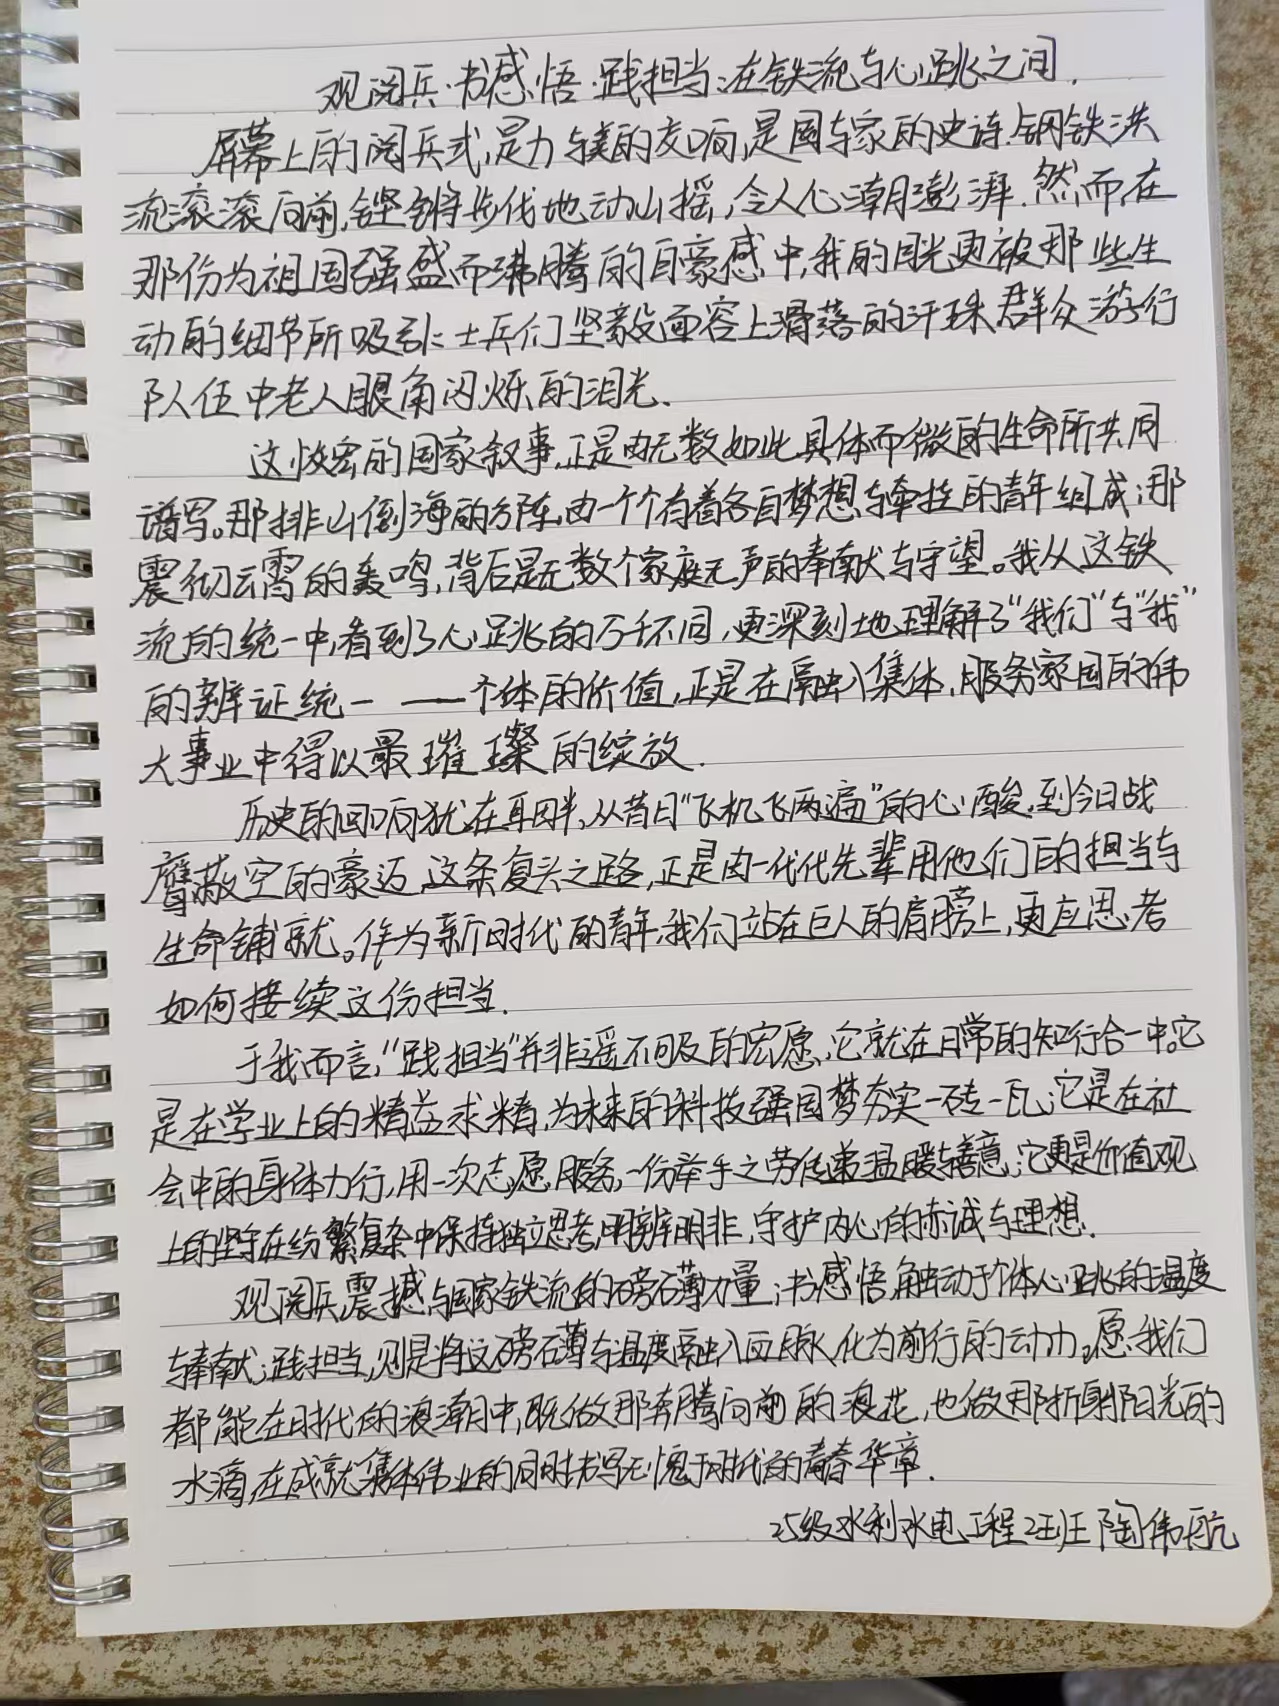 观阅兵·书感悟·践担当:在铁流与心跳之间.
屏幕上的阅兵式,是力与美的交响,是国与家的史诗.钢铁洪
流滚滚向前,铿锵步伐地动山摇,令人心潮澎湃.然而,在
那份为祖国强盛而沸腾的自豪感中,我的目光更被那些生
动的细节所吸引:士兵们坚毅面容上滑落的汗珠,群众游行
队伍中老人眼角闪烁的泪光.
这恢宏的国家叙事,正是由无数如此具体而微的生命所共同
谱写。那排山倒海的方阵,由一个个有着各自梦想与牵挂的青年组成;那
震彻云霄的轰鸣,背后是无数个家庭无声的奉献与守望。我从这铁
流的统一中,看到了心跳的万千不同,更深刻地理解了“我们”与“我”
的辨证统一——个体的价值,正是在融入集体,服务家国的伟
大事业中得以最璀璨的绽放.
历史的回响犹在耳畔,从昔日“飞机飞两遍”的心酸,到今日战
鹰蔽空的豪迈,这条复兴之路,正是由一代代先辈用他们的担当与
生命铺就。作为新时代的青年,我们站在巨人的肩膀上,更应思考
如何接续这份担当.
于我而言,“践担当”并非遥不可及的宏愿,它就在日常的知行合一中。它
是在学业上的精益求精,为未来的科技强国梦夯实一砖一瓦;它是在社
会中的身体力行,用一次志愿服务,一份举手之劳传递温暖与善意;它更是价值观
上的坚守,在纷繁复杂中保持独立思考,明辨明非,守护内心的赤诚与理想.
观阅兵,震撼与国家铁流的磅礴力量;书感悟,触动于个体心跳的温度
与奉献;践担当,则是将这磅礴与温度融入血脉,化为前行的动力。愿我们
都能在时代的浪潮中,既做那奔腾向前的浪花,也做那折射阳光的
水滴,在成就集体伟业的同时书写无愧于时代的青春华章.
25级水利水电工程2班 陶伟航